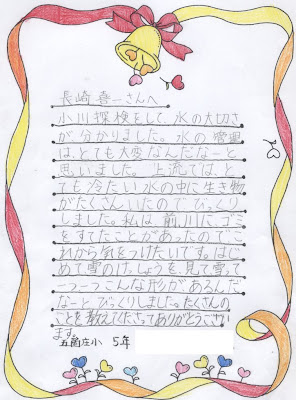 長崎喜一さんへ
小川探検をして水の大切さ
が分かりました。水の管理
は、とても大変なんだなーと
思いました。上流では、と
ても冷たい水の中に生き物
がたくさんいたのでびっくり
しました。私は、前、川にゴミ
をすてたことがあったのでこ
れから気をつけたいです。はじ
めて雪のけっしょうを、見て雪って
一つ一つこんな形があるんだ
なーとびっくりしました。たくさんの
ことを教えてくださってありがとうござい
ます。
五箇庄小 5年